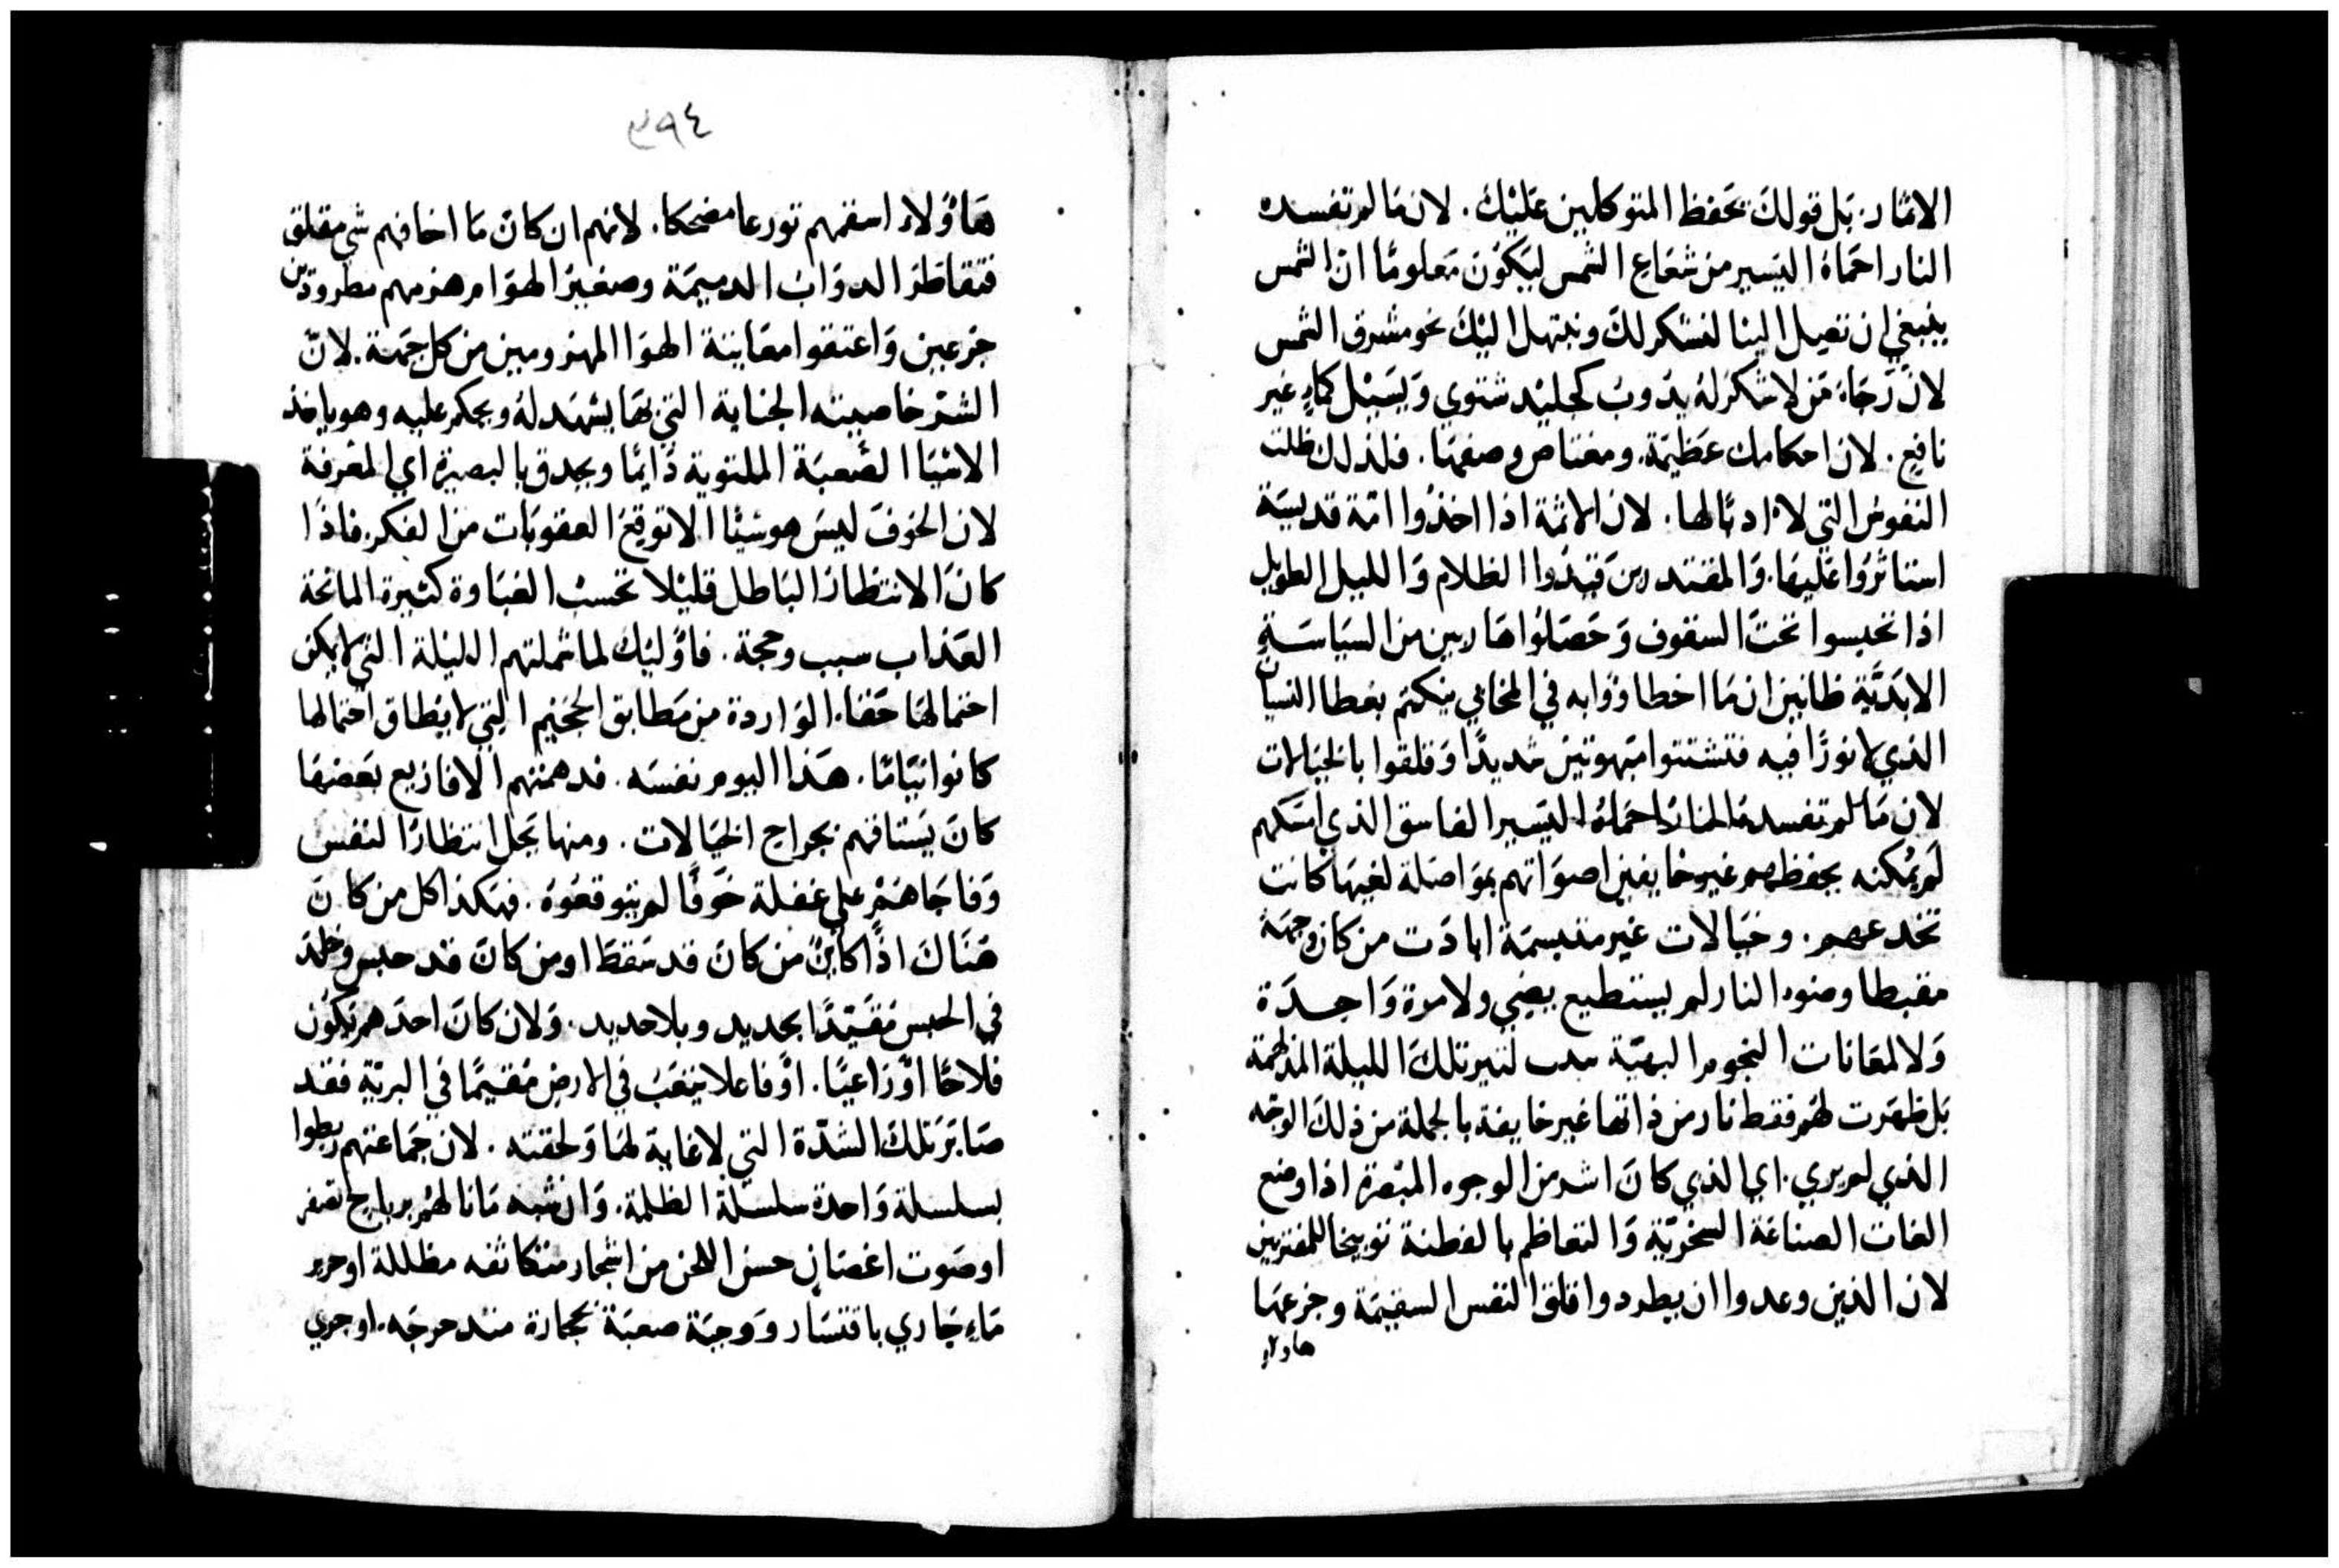 الاثمار. بَل قولكَ يَحفظ المتوكلين عَليْك. لان مَا لم تفسده
النار احمَاهُ اليَسير من شعَاع الشمس ليَكوُن مَعلومًا ان الشمس
ينبغي ان تصِل الينا لنشكر لكَ ونبتهل اليْكَ نحو مشرق الشمس
لان رَجَاءَ مَن لا شكر لهُ يذوبُ كجليْد شتوي وَيسَيْل كمَاءٍ غير
نافِع. لان احكامك عَظيمَة. ومغتاص وصفهَا. فلذلك ظلت
النفوسُ التي لا ادبَ لها. لان الاثمة اذا اخذوُا امّة قديسَة
استاثرَوُا عَليهَا. وَالمقتدرين قيدُوا الظلام وَالليل الطويل
اذا تحبسوا تحتَ السقوف وَحَصَلوُا هَاربين من السيَاسَةِ
الابَدَيَّة ظانين ان مَا اخطاوُا به في المخابي ينكتم بغطا النسيان
الذي لا نورًا فيه فتشتتوا مبَهوتين شديدًا وَقلقوا بالخيَالات
لان مَا لم تفسدهُ النارُ احمَاهُ اليَسير الفاسق الذي امسَكهم
لم يُمكنه بحفظهم غير خايفين اصوَاتهم بموَاصَلة لغيهَا كانت
تخدعهم. وخيَالات غير متبسمَة ابادَت من كان وجهَهُ
مقبطا وضوء النار لم يستطيع يضي ولا مرة وَاحِدَة
وَلا لمعَانات النجوم البهيّة لتنير تلكَ الليلة المذلهمة
بَل ظهَرت لهُم فقط نار من ذاتها غير خايفة بالجملة من ذلكَ الوَجْه
الذي لم يري. اي الذي كانَ اشد من الوجوه المبْصرَة اذا وضع
الغات الصناعَة السَخْريّة وَالتعاظم بالفطنة توبيخا للمفترين
لان الذين وعدوا ان يطردوا قلق النفس السقيمَة وجزعهَا
هاولاِ
٣٩٤
هَاوُلاء اسقمهم تورعا مضحكا. لانهم ان كانَ مَا اخافهم شي مقلق
فتقاطرَ الدوَابُ الدميمَة وصفيْرُ الهوَام هزمهم مطرودين
جزعين وَاعتقوا معَاينة الهوَا المهزومين من كل جهَة. لانّ
الشرّ خاصيته الجناية التي بهَا يشهَد لهُ ويحكم عليه وهو ياخذ
الاشيَا الصَعبَة الملتوية دَايمًا ويحدق بالبصيرة اي المعْرفة
لان الخوفَ ليسَ هو شيئًا الا توقِعَ العقوبَات من الفكر. فاذًا
كانَ الانتظارُ البَاطل قليْلا تحسبُ الغبَاوة كثيرة المانحة
العَذاب سبب وحجة. فاوُليْك لما شملتهم الليْلة التي لا يمكن
احتمالهَا حَقا. الوَاردة من مَطابق الجَحيم التي لا يطاق احتمالها
كانوا نيَامًا. هَذا اليوم نفسَه. قد دهمتهم الافازيع بَعضهَا
كانَ يَستافهم بجراج الخيَالات. ومنها يَحل انتظارًا لنفس
وَفاجَاهُمْ على غفلة خَوفًا لم يتوقعَوُهُ. فهَكذا كل من كانَ
هَنَاكَ اذًا كايْنٌ من كانَ قد سَقطَ او من كانَ قد حبس وخلدَ
في الحبس مُقَيَّدًا بحديد وبلا حديد. وَلان كانَ احدَهم يَكوُن
فلاحًا اوْ رَاعيًا. اوْ فاعلا يتعَبُ في الارض مُقيمًا في البريّة فقد
صَابَرَ تلكَ الشدّة التي لا غاية لهَا وَلحقته. لان جَمَاعتهم ربطوا
بسلسلة وَاحدة سلسلة الظلمة. وَان شبه مَانا لهُم برياح تصفر
او صَوت اغصَانٍ حسن اللحن من اشجار متكاثفه مظللة او جرير
مَاءٍ جَاري باقتسَار وَوجبَة صعبَة بحجارة متدحرجَه. او جري